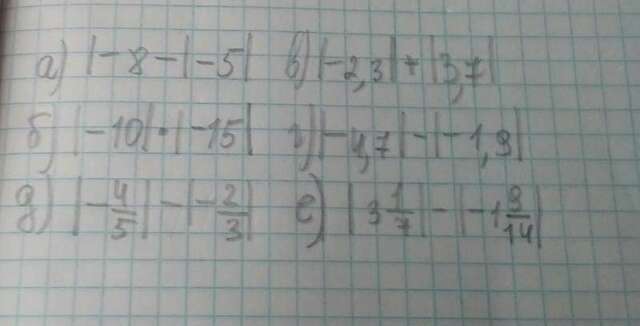 а) |-8-|-5| в) |-2,3| + |3,7|
б) |-10| · |-15| г) |-4,7| - |-1,9|
д) |-4/5| - |-2/3| е) |3 1/7| - |-1 9/14|